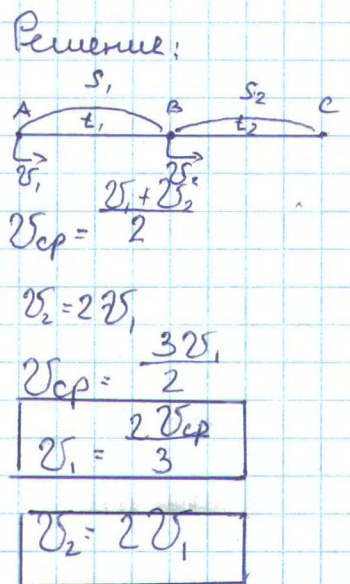 Решение:
S₁ S₂
A B C
t₁ t₂
v₁ v₂
vср = (v₁ + v₂)/2
v₂ = 2v₁
vср = 3v₁/2
v₁ = 2vср/3
v₂ = 2v₁